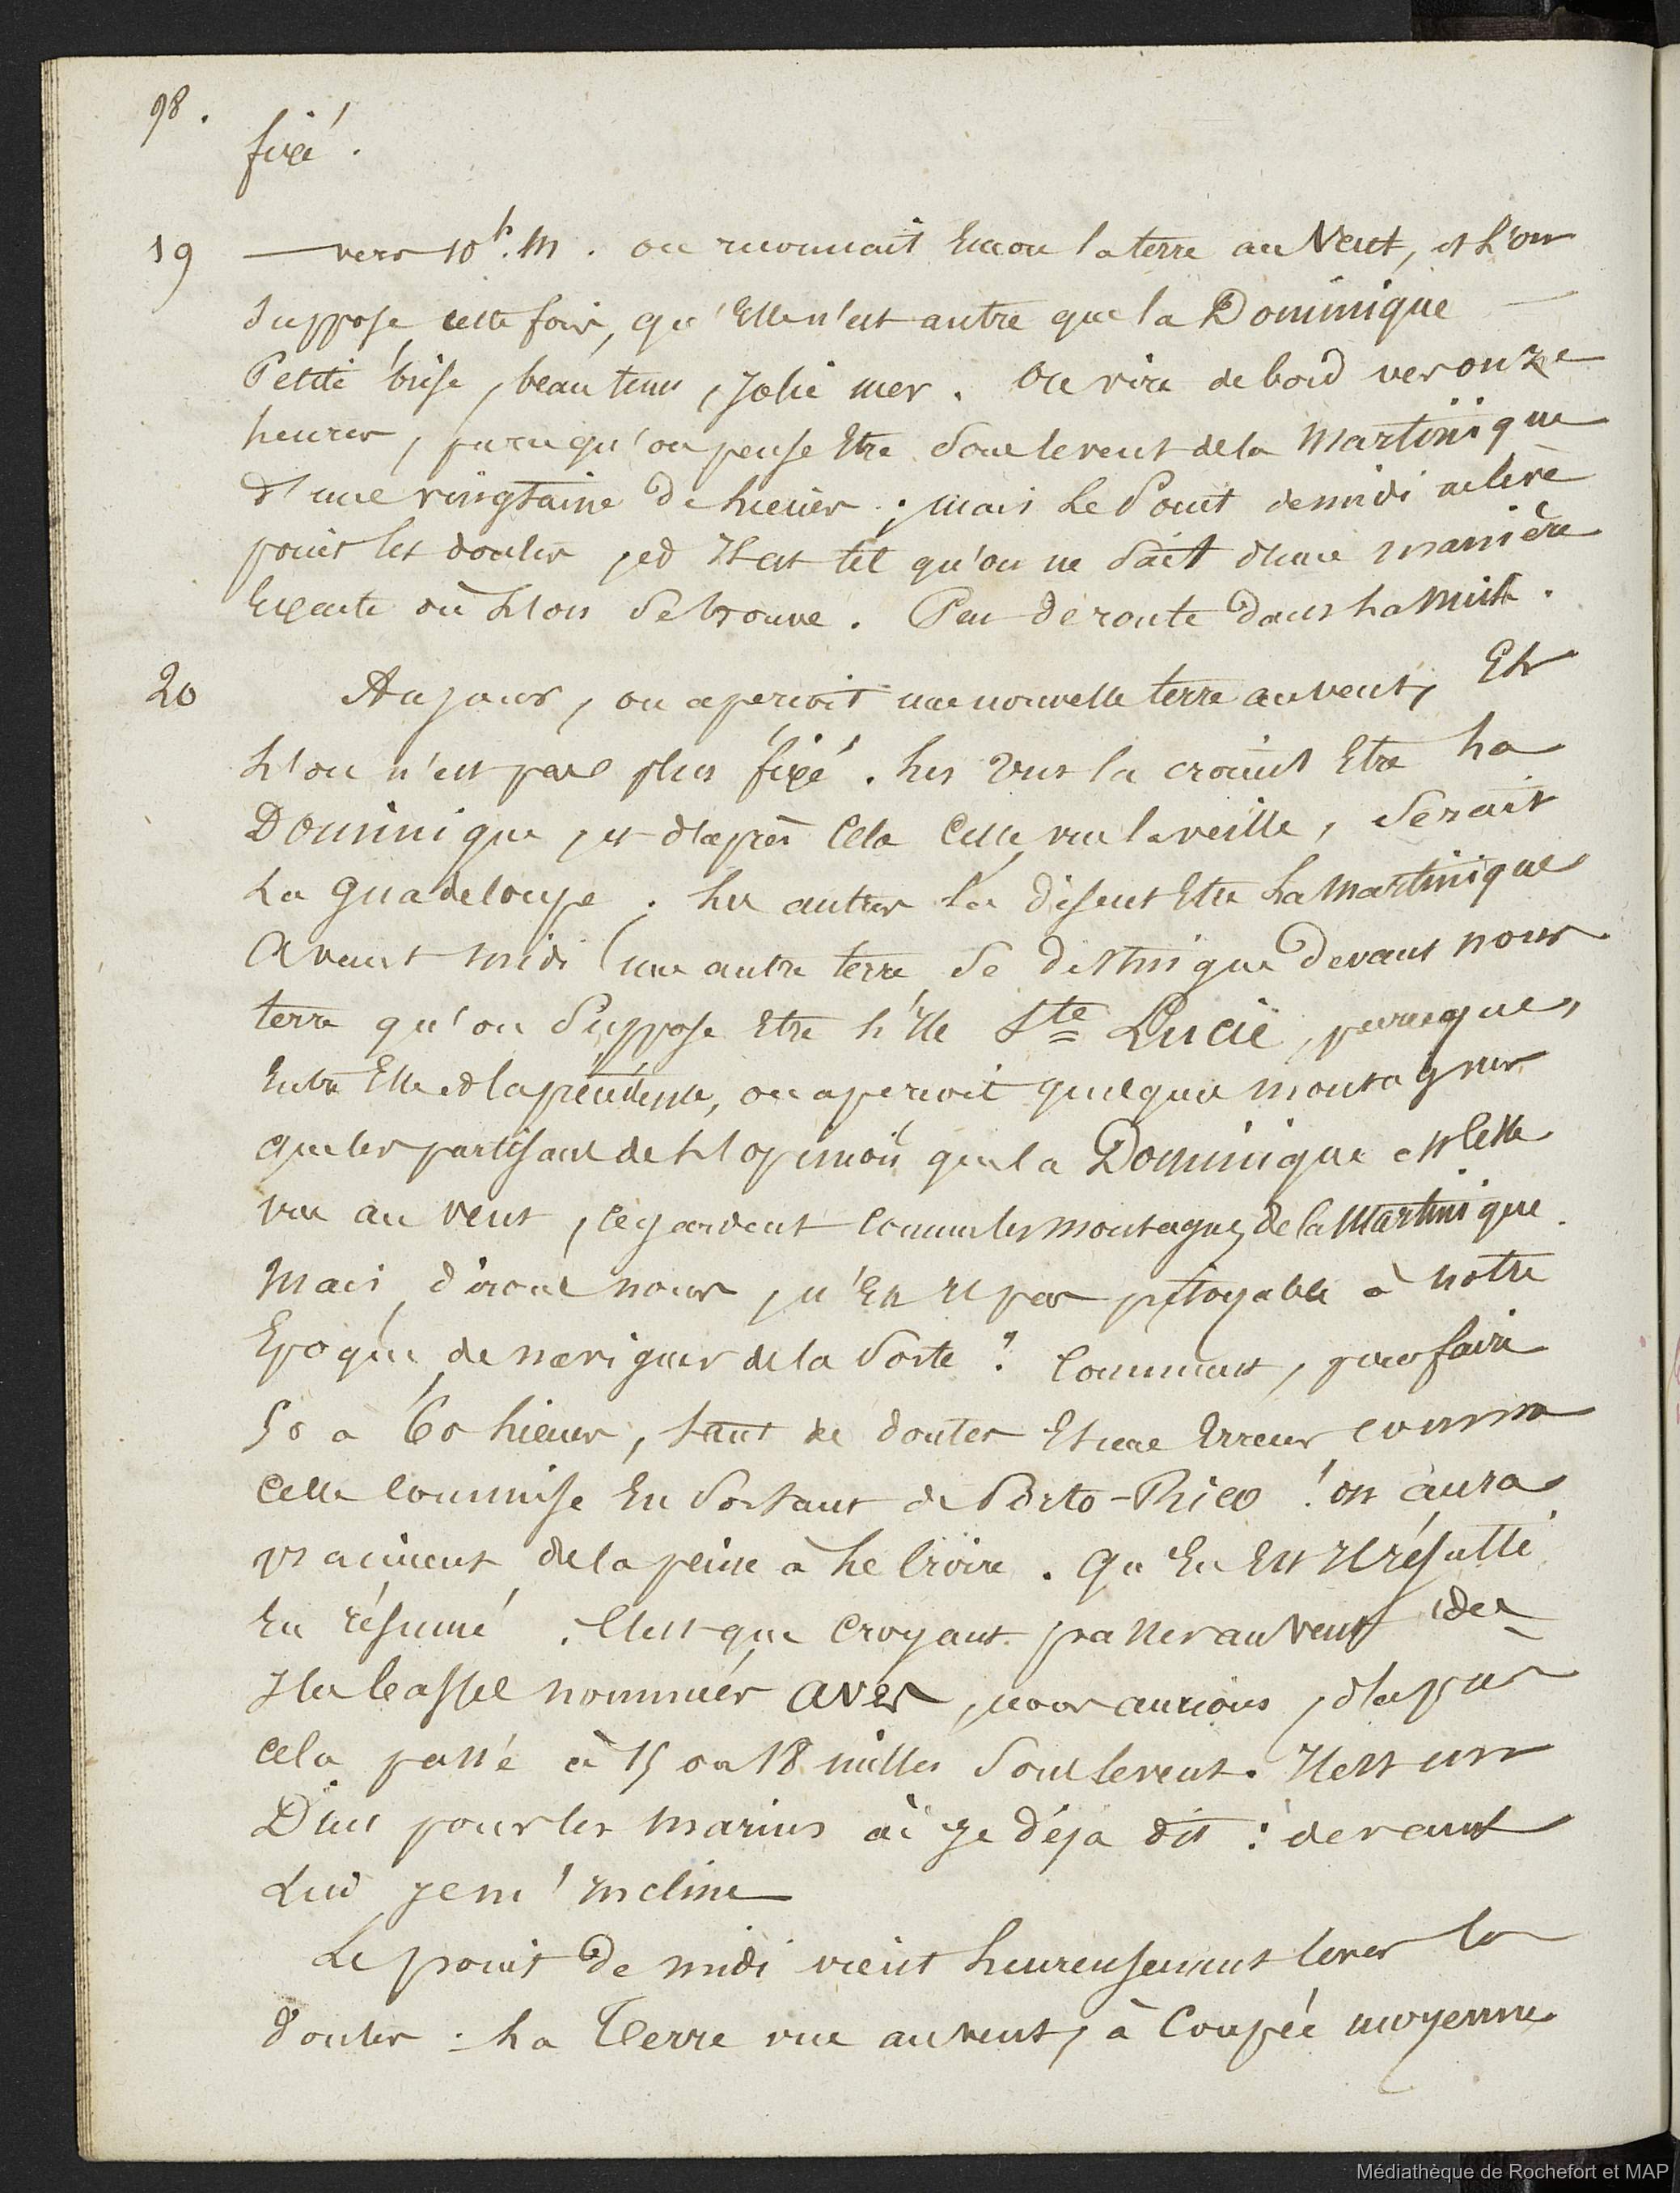 98.
fixé.
19 — vers 10h. m. on reconnait encore la terre au Vent, et l'on
suppose cette fois, qu'elle n'est autre que la Dominique —
Petite brise, beau tems, jolie mer. On vire de bord vers onze
heures, parcequ'on pense être sous le vent de la Martinique
d'une vingtaine de lieues; mais le Point de midi relève
les doutes, et Il est tel qu'on ne sait d'une manière
exacte où l'on se trouve. Peu de route dans la nuit.
20 Au jour, on aperçoit une nouvelle terre au vent, Et
l'on n'est pas plus fixé. les uns la croient Etre la
Dominique, et d'après cela celle vue la veille, serait
La Guadeloupe. les autres la disent Etre la Martinique
Avant midi une autre terre se distingue devant nous
terre qu'on suppose Etre l'Ile Ste Lucie, parceque,
Entre Elle et la précédente, on aperçoit quelques montagnes
que les partisans de l'opinion que la Dominique est celle
vue au vent, regardent comme les montagnes de la Martinique.
Mais, dirons nous, n'En Il pas pitoyable à notre
Epoque de naviguer de la sorte? Comment, pour faire
50 a 60 lieues, tant de doutes Et une Erreur comme
celle commise En sortant de Porto-Rico! on aura
vraiment de la peine à le croire. Qu'En Est Il résulté
En résumé. C'est que croyant passer au vent des
Iles basses nommées Aves, nous aurions, d'après
cela passé à 15 ou 18 milles sous le vent. Il est un
Dieu pour les marins ai je déjà dit: devant
Lui je m'incline
Le point de midi vient heureusement lever les
doutes: La Terre vue au vent, à Coupée moyenne
Médiathèque de Rochefort et MAP